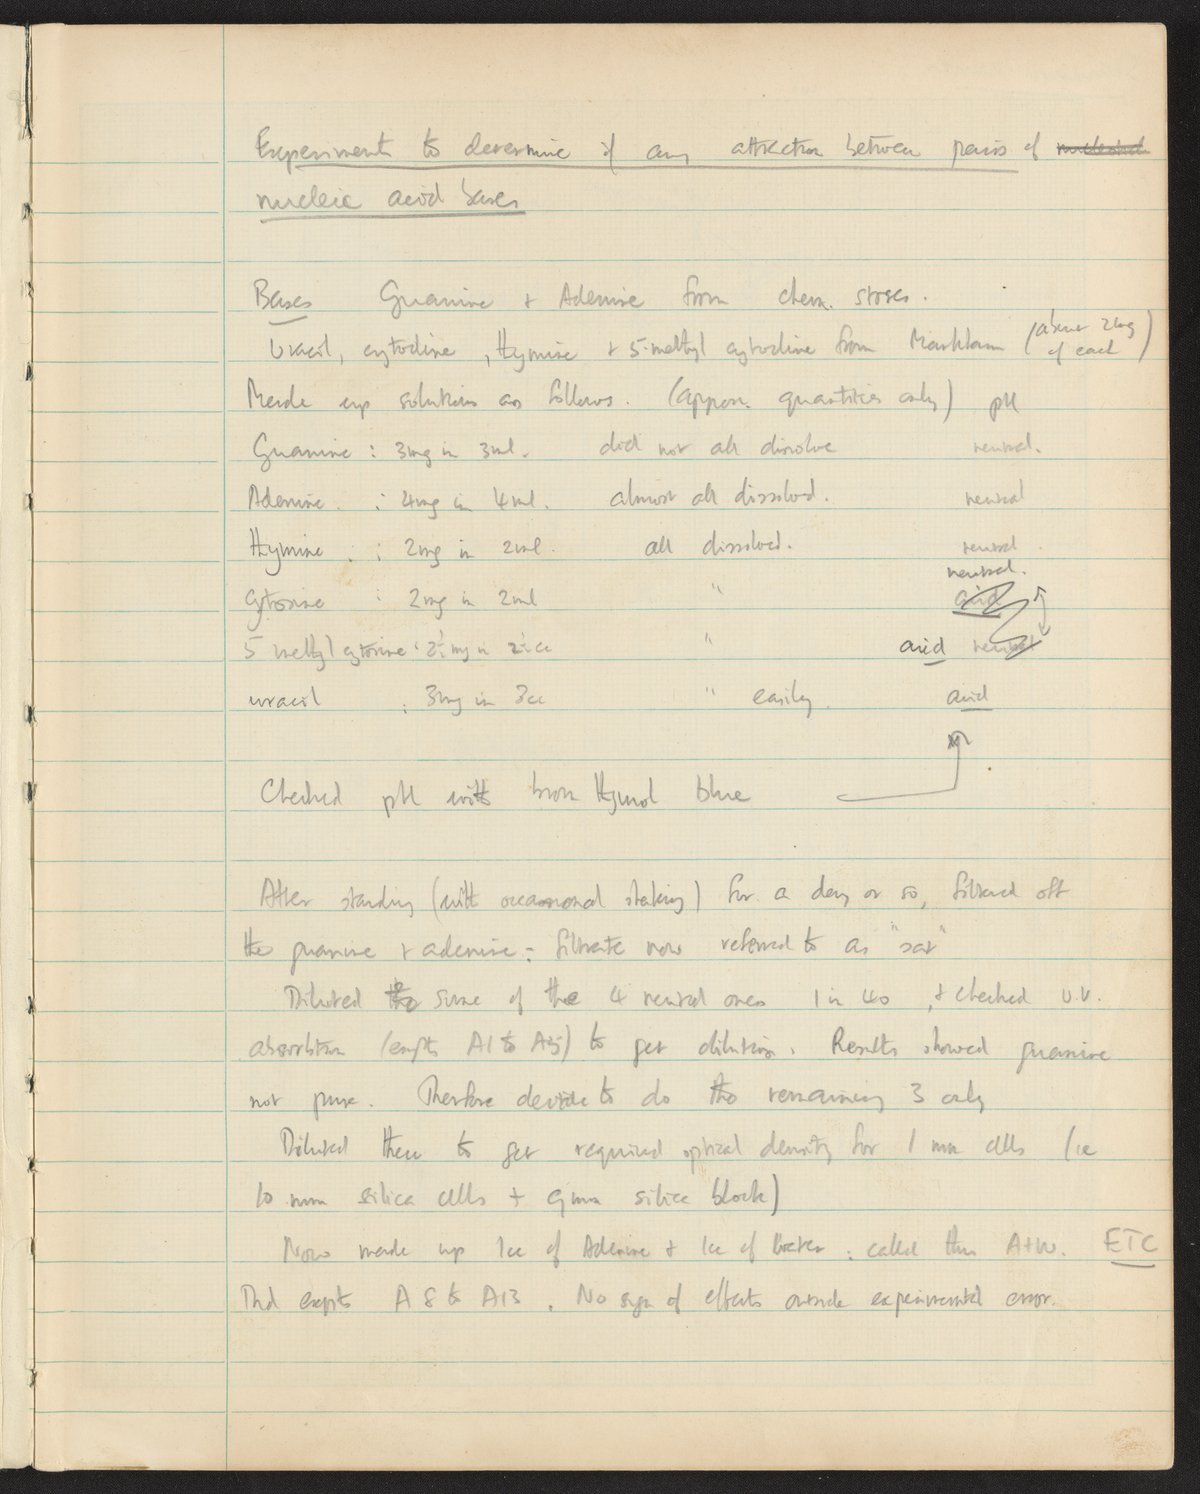 Experiment to determine if any attraction between pairs of
nucleic acid bases
Bases Guanine + Adenine from chem. stores.
Uracil, cytosine, thymine + 5-methyl cytosine from Markham (about 2mg of each)
Made up solutions as follows. (approx. quantities only) pH
Guanine : 3mg in 3ml. did not all dissolve neutral.
Adenine : 4mg in 4ml. almost all dissolved. neutral
thymine : 2mg in 2ml. all dissolved. neutral
neutral.
Cytosine : 2mg in 2ml " acid
5 methyl cytosine : 2½mg in 2½cc " acid neutral
uracil : 3mg in 3cc " easily. acid
Checked pH with brom thymol blue
After standing (with occasional shaking) for a day or so, filtered off
the guanine + adenine : filtrate now referred to as "sat"
Diluted some of the 4 neutral ones 1 in 40, + checked U.V.
absorbtion (expts A1 to A5) to get dilutions. Results showed guanine
not pure. Therefore decide to do the remaining 3 only
Diluted these to get required optical density for 1 mm cells (ie
10 mm silica cells + 9mm silica block)
Now made up 1cc of Adenine + 1cc of Water : called this A+W. ETC
Did expts A8 to A13. No sign of effects outside experimental error.